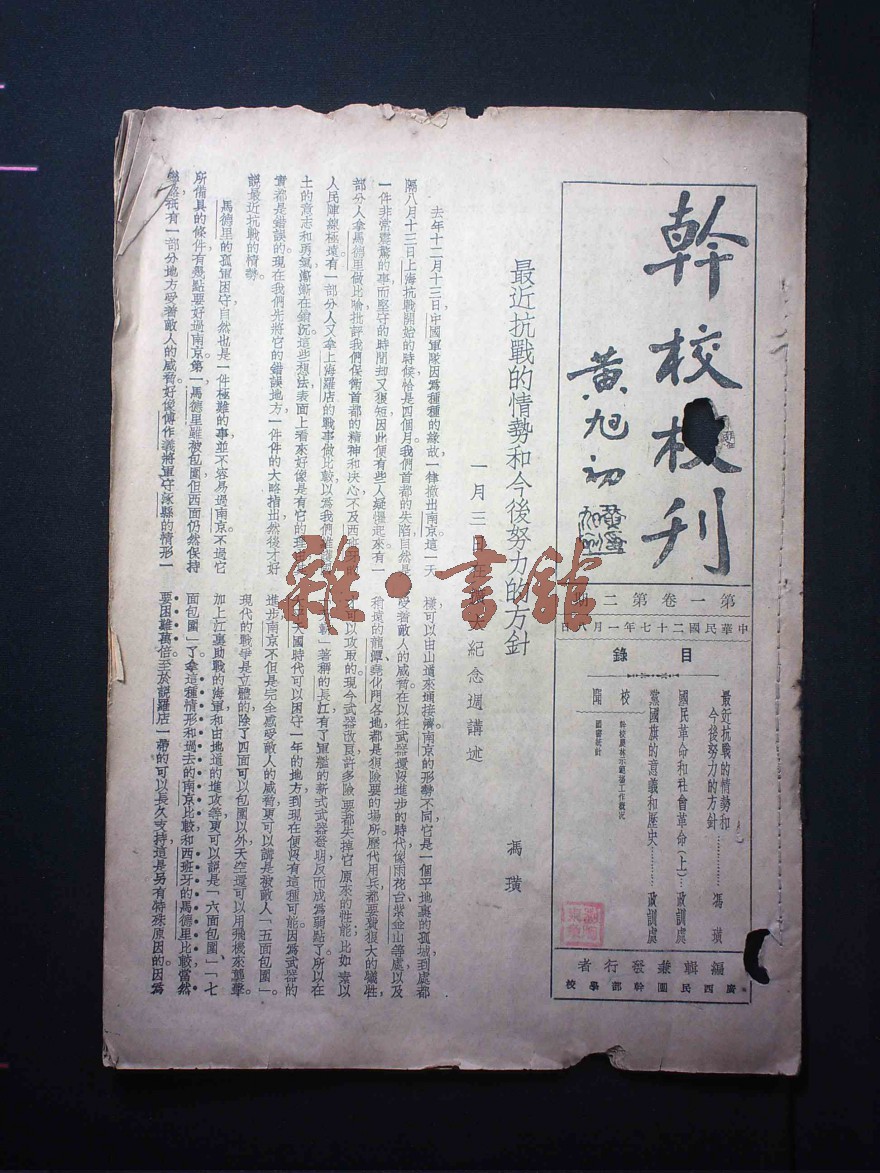 幹校校刊
黃旭初
第一卷第二期
中華民國二十七年一月八日
目錄
最近抗戰的情勢和
今後努力的方針…………馮璜
國民革命和社會革命(上)…政訓處
黨國旗的意義和歷史…………政訓處
校聞
幹校農林示範場工作概況
圖書統計
編輯兼發行者
廣西民團幹部學校
最近抗戰的情勢和今後努力的方針
一月三日在
紀念週講述
馮璜
去年十二月十三日,中國軍隊因爲種種的緣故,一律撤出南京。這一天
隔八月十三日上海抗戰開始的時候恰是四個月。我們首都的失陷自然是
一件非常震驚的事,而堅守的時間却又很短,因此便有些人疑懼起來。有一
部分人拿馬德里做比喩,批評我們保衞首都的精神和決心不及西班牙
人民陣線極遠。有一部分人又拿上海羅店的戰事做比較,以爲我們
土的意志和勇氣漸漸在銷沉。這些想法,表面上看來好像是有它的理由,
實都是錯誤的。現在我們先將它的錯誤地方,一件件的大略指出,然後才好
說最近抗戰的情勢。
馬德里的孤軍困守,自然也是一件極難的事,並不容易過南京。不過它
所備具的條件有幾點要好過南京。第一,馬德里雖被包圍,但西面仍然保持
有一部分地方受着敵人的威脅,好像傅作義將軍守涿縣的情形一
樣,可以由山道來通接濟。南京的形勢不同,它是一個平地裏的孤城,到處都
受着敵人的威脅。在以往武器還沒進步的時代,像雨花台、紫金山等處,以及
稍遠的龍潭、堯化門各地,都是很險要的場所,歷代用兵都要費很大的犧牲,
可以攻取的。現今武器改良,許多險要都失掉它原來的性能,比如素以
著稱的長江,有了軍艦的新式武器發明,反而成爲弱點了。所以在
天國時代可以困守一年的地方,到現在便沒有這種可能。因爲武器的
進步,南京不但是完全感受敵人的威脅,更可以講是被敵人「五面包圍」。
現代的戰爭是立體的,除了四面可以包圍以外,天空還可以用飛機來襲擊。
加上江裏助戰的海軍和由地道的進攻等,更可以說是「六面包圍」、「七
面包圍」了。拿這種情形和過去的南京比較,和西班牙的馬德里比較,當然
要困難萬倍。至於說羅店一帶的可以長久支持,這是另有特殊原因的。因爲
雜·書館